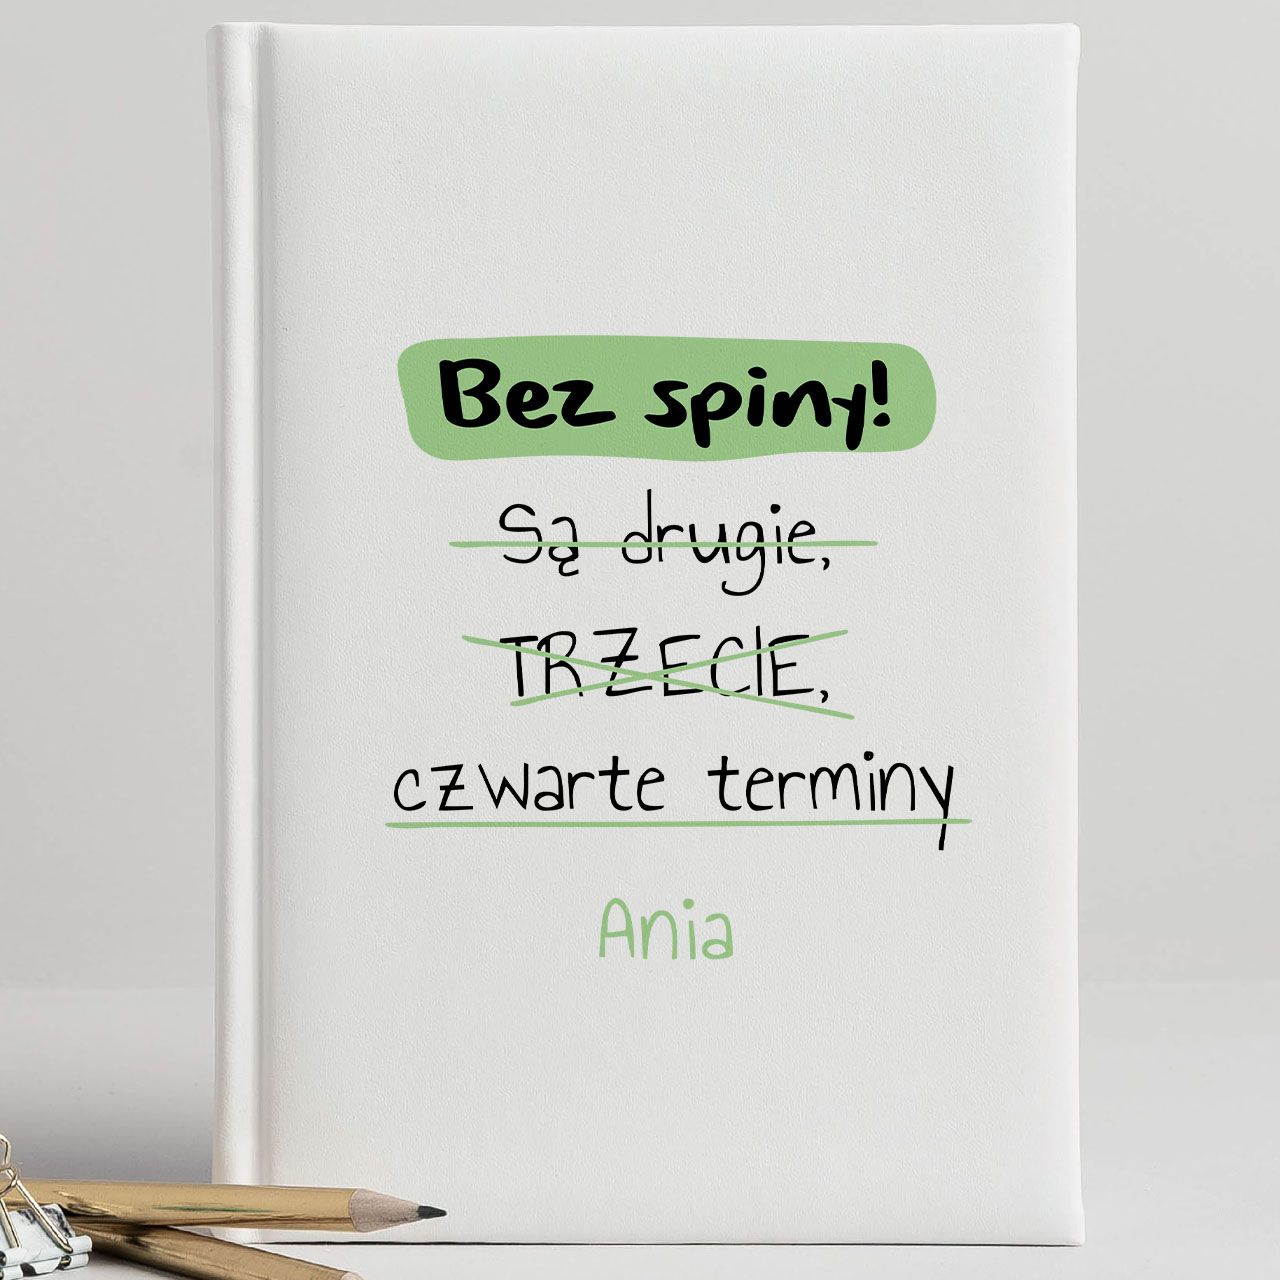 Bez spiny!
Są drugie,
TRZECIE,
czwarte terminy
Ania